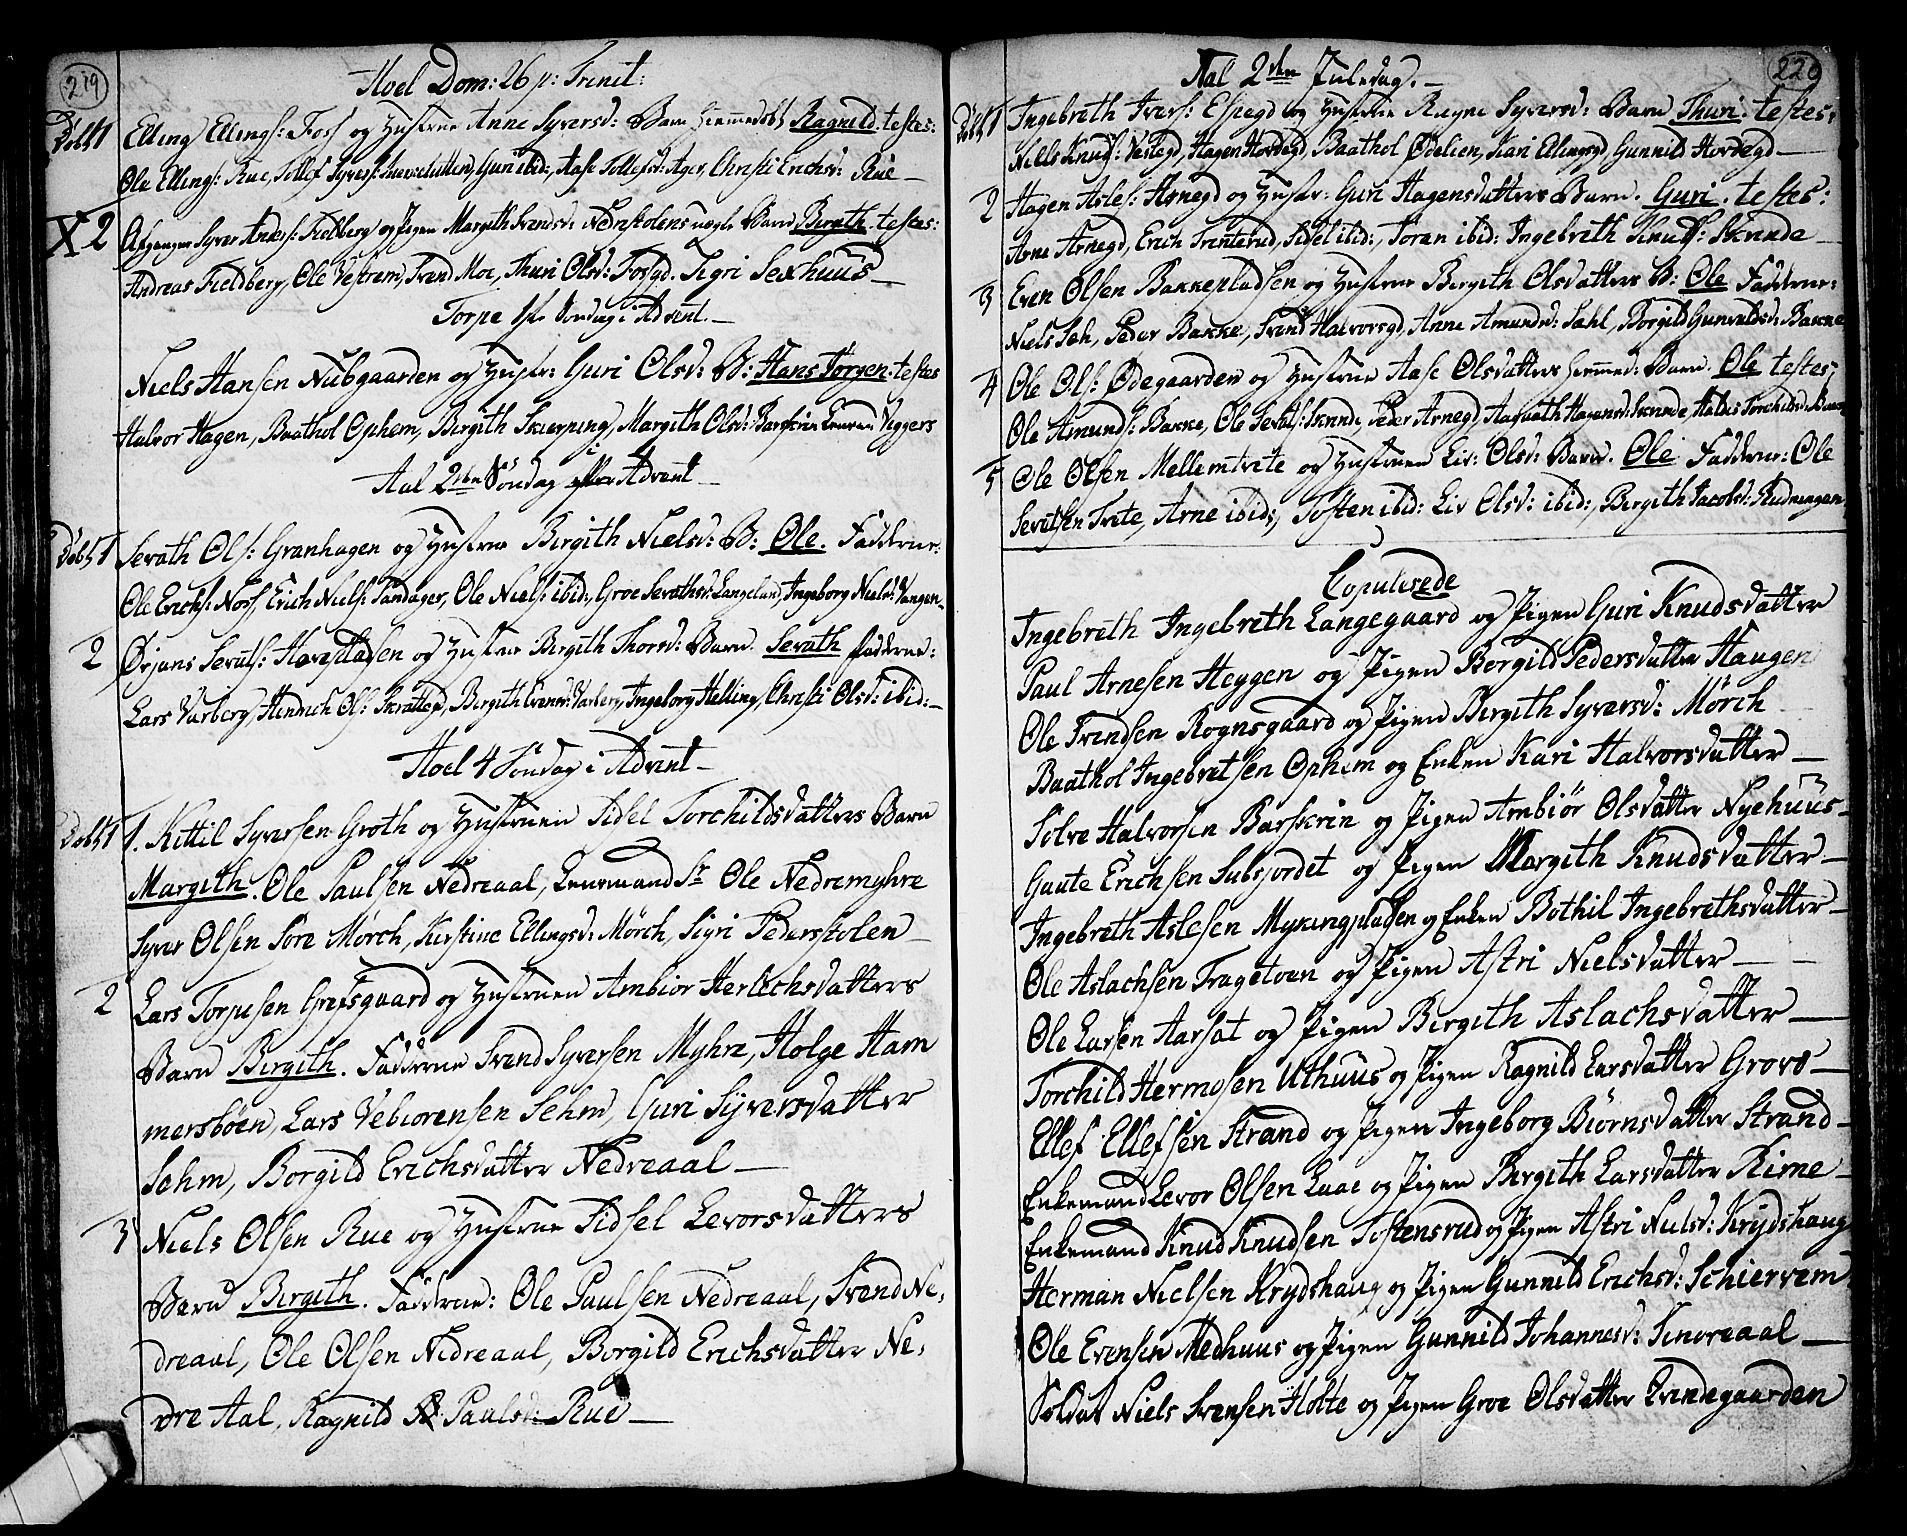 219
Hoel Dom: 26 p: Trinit:
Döbt 1 Elling Ellings: Foss og Hustrue Anne Syversd: Barn hiemmedöbt Ragnild. testes:
Ole Ellings: Rue, Tollef Syvers: Guri ibid:, Aase Tollefsd: Ager, Christi Erichsd: Rue
X 2 Afgangne Syver Anders: Fieldberg og Pigen Margith Svends: Barn Birgith. testes:
Andreas Fieldberg, Ole Vestrem, Svend Moe, Thuri Olsd: Tosgd. Sigri Sexhuus
Torpe 1ste Söndag i Advent.
Niels Hansen Nubgaarden og Hustr: Guri Olsd: B: Hans Jörgen. testes
Halvor Hagen, Baathol Ophem, Birgith Skierping, Margith Olsd: Barskrin Viggers
Aal 2den Söndag i Advent
Döbt 1 Sevath Ols: Granhagen og Hustrue Birgith Nielsd: B: Ole. Fadderne:
Ole Erichs: Noss, Erich Niels: Sandager, Ole Niels: ibid:, Groe Sevathsd: Langeland, Ingeborg Nielsd: Vangen
2 Örjans Sevats: Hovestadsen og Hustrue Birgith Thorsd: Barn. Sevath fadderne:
Lars Varberg, Hindrich Ols: Skrattegd, Birgith Evensd: Varberg, Ingeborg Helling, Christi Olsd: ibid:
Hoel 4 Söndag i Advent
Döbt 1 1. Kittil Syversen Groth og Hustruen Sidsel Torchildsdatters Barn
Margith. Ole Paulsen Nedreaal, Lensmand Sr Ole Nedremyhre
Syver Olsen Söre Mörch, Kirstine Ellingsd: Mörch, Sigri Pedersstolen
2 Lars Torpusen Grefsgaard og Hustruen Ambior Herlichsdatters
Barn Birgith. Fadderne Svend Syversen Myhre, Holge Ham
mersböen, Lars Vebiorensen Sehm, Guri Syversdatter
Sehm, Borgild Erichsdatter Nedreaal
3 Niels Olsen Rue og Hustrue Sidsel Levorsdatters
Barn Birgith. Fadderne: Ole Paulsen Nedreaal, Svend Ne,
dreaal, Ole Olsen Nedreaal, Borgild Erichsdatter Ne,
dre Aal, Ragnild Paulsd: Rue
220
Aal 2den Juledag.
Döbt 1 Ingebreth Ivers: Espegd og Hustrue Ragne Syversd: Barn Thuri. testes:
Niels Knuds: Vestegd, Hagen Hovdegd, Baathol Ödelien, Kari Ellingsgd, Gunnild Hovdegd
2 Hagen Asles: Arnegd og Hustr: Guri Hagensdatters Barn. Guri. testes:
Arne Arnegd, Erich Trinterud, Sidsel ibid:, Joran ibid: Ingebreth Knuds: Skrude
3 Even Olsen Bakkepladsen og Hustrue Birgith Olsdatters B: Ole Fadderne:
Niels Seh, Peder Bakke, Svend Halvorsgd, Anne Amundsd: Sahl, Borgild Gunvaldsd: Bakke
4 Ole Ols: Ödegaarden og Hustrue Aase Olsdatters hiemmed: Barn. Ole testes;
Ole Amunds: Bakke, Ole Sevats: Skrude Peder Arnegd, Aagaath Hagensd: Skrude,
5 Ole Olsen Mellemtvete og Hustruen Liv: Olsd: Barn. Ole Fadderne: Ole
Sevatsen Tvete, Arne ibid;, Tosten ibid: Liv Olsd: ibid:, Birgith Jacobsd: Rudningen
Copulerede
Ingebreth Ingebreth Langegaard og Pigen Guri Knudsdatter
Paul Arnesen Heggen og Pigen Borgild Pedersdatter Haugen
Ole Svendsen Rognsgaard og Pigen Birgith Syversd: Mörch
Baathol Ingebretsen Ophem og Enken Kari Halvorsdatter
Solve Halvorsen Barskrin og Pigen Ambiör Olsdatter Nyehuus
Gaute Erichsen Subsjordet og Pigen Margith Knudsdatter
Ingebreth Aslesen Mykingpladsen og Enken Bothil Ingebrethsdatter
Ole Aslachsen Tragetoen og Pigen Astri Nielsdatter
Ole Larsen Aarsat og Pigen Birgith Aslachsdatter
Torchild Hermosen Uthuus og Pigen Ragnild Larsdatter Grove
Ellef Ellefsen Strand og Pigen Ingeborg Biörnsdatter Strand
Enkemand Levor Olsen Laae og Pigen Birgith Larsdatter Rime
Enkemand Knud Knudsen Tostensrud og Pigen Astri Nielsd: Krydshaug
Herman Nielsen Krydshaug og Pigen Gunnild Erichsd: Schiervem
Ole Evensen Medhuus og Pigen Gunnild Johannesd: Knoreaal
Soldat Niels Svensen Holte og Pigen Groe Olsdatter Trindegaarden